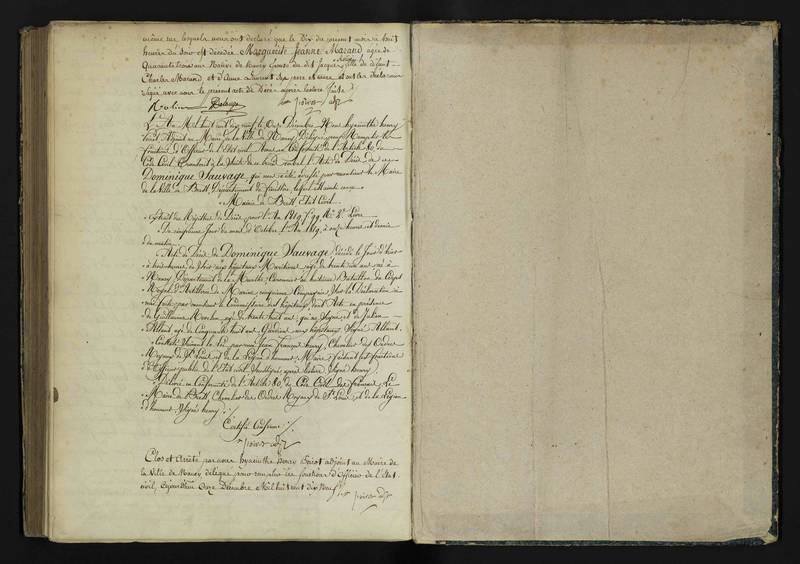 même sur lesquels nous ont déclaré que le Dix du présent mois à huit
heures du soir est décédée Marguerite Jeanne Marand agée de
Quarante trois ans Native de Nancy Epouse du dit Jacques fille de défunt
Charles Marand et d'Anne ses pere et mere et ont les déclarans
Signé avec nous le présent acte de Décès après lecture faite
L'An Mil huit cent dix neuf le Onze Décembre Nous hyacinthe henry
adjoint au Maire de la Ville de Nancy Délégué pour Remplir les
fonctions d'Officier de l'Etat civil Avons en Conformité de l'Article 80 du
Code Civil l'Acte de Décès de
Dominique Sauvage qui nous a été adressé par monsieur le Maire
de la Ville de Brest Département du finistère
Mairie de Brest Etat Civil
Extrait des Régistres de Décès pour l'An 1819
Du Premier Jour du mois d'Octobre l'An 1819, à onze heures et demie
du matin
Acte de Décès de Dominique Sauvage, décédé le Jour d'hier
à heures du soir aux hôpitaux Maritimes agé de trente un ans né à
Nancy Département de la Meurthe, Canonier au huitieme Bataillon du Corps
Royal d'Artillerie de Marine cinquieme Compagnie Sur la Déclaration à
moi faite par monsieur le Commissaire des hôpitaux, dont Acte en présence
de Guillaume agé de trente huit ans qui a Signé, et de Julien
Allant agé de Cinquante huit ans, Gardien aux hôpitaux Signé Allant.
Constaté Suivant la Loi par moi Jean François henry, Chevalier des Ordres
Royaux de St Louis et de la Légion d'honneur, Maire, faisant les fonctions
d'Officier public de l'Etat civil Soussigné, après lecture Signé henry
Délivré en Conformité de l'Article 80 du Code Civil des français, Le
Maire de Brest, Chevalier des Ordres Royaux de St Louis et de la Légion
d'honneur Signé henry
Certifié Conforme
Clos et Arrêté par nous hyacinthe henry adjoint au Maire de
la Ville de Nancy délégué pour remplir les fonctions d'Officier de l'Etat
civil, aujourd'hui Onze Décembre Mil huit cent dix Neuf